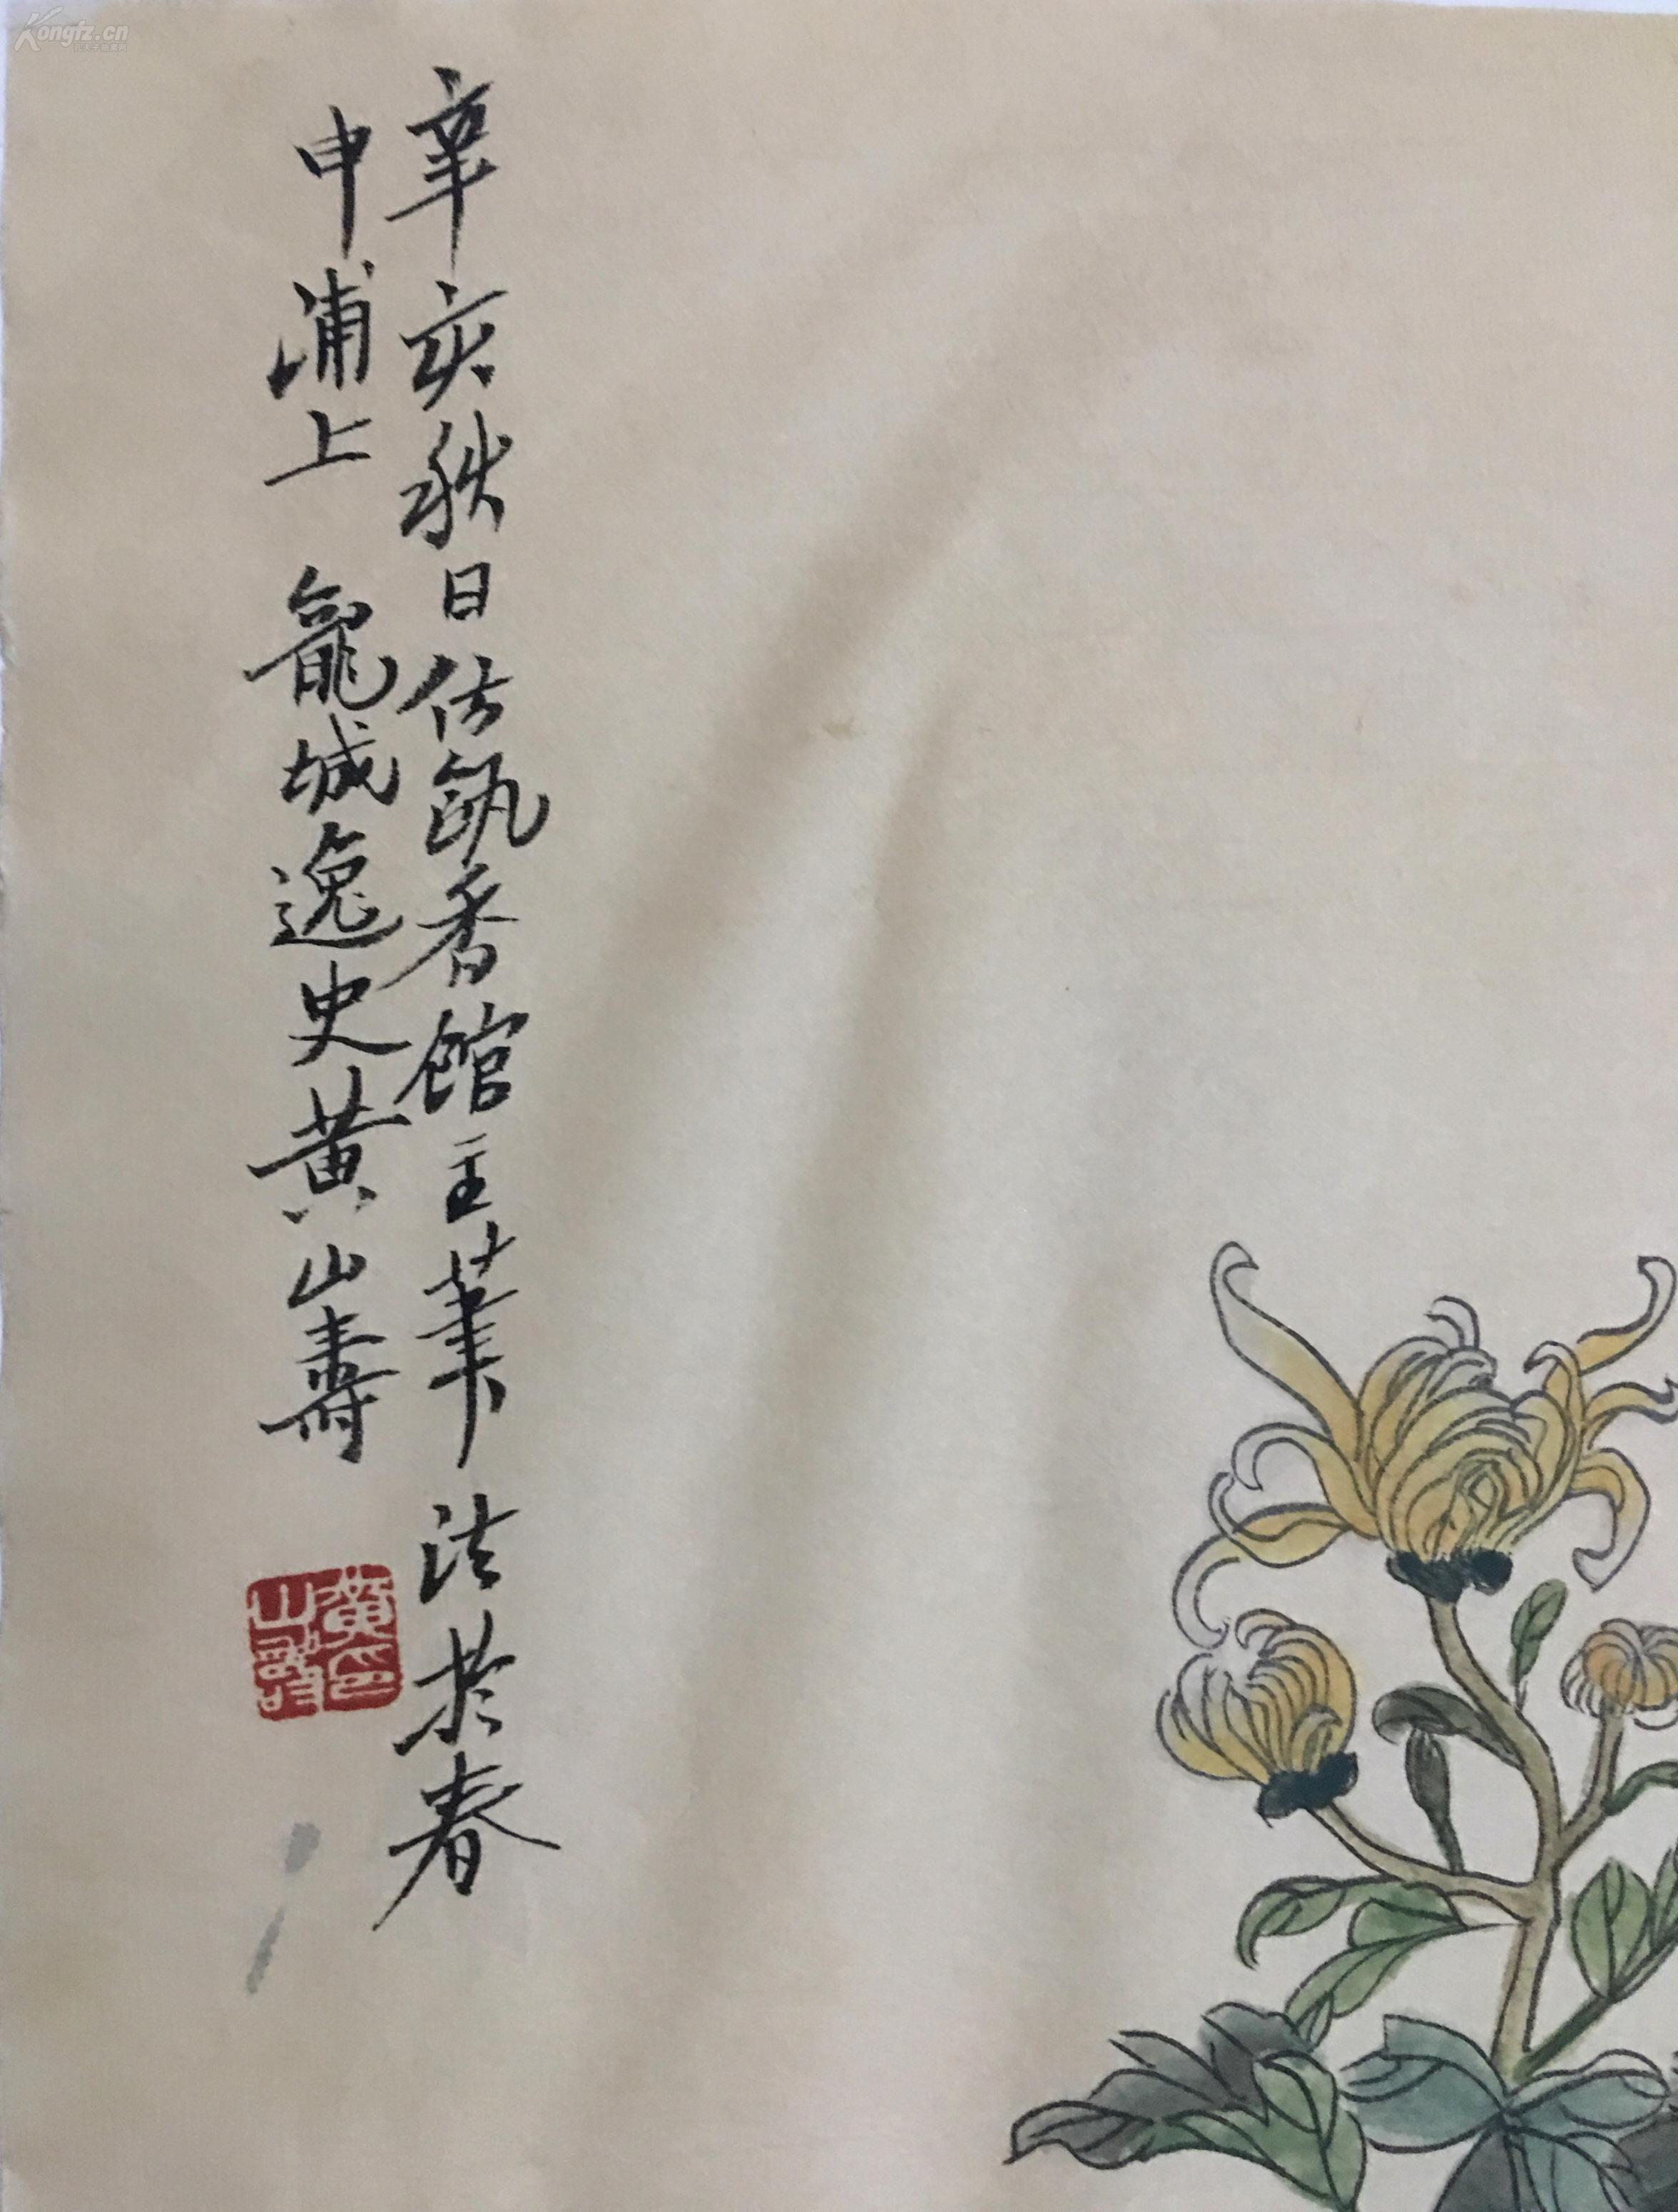 辛亥秋日仿甌香館主筆法於春
申浦上 龍城逸史黃山壽
黃山壽印
Kongfz.cn